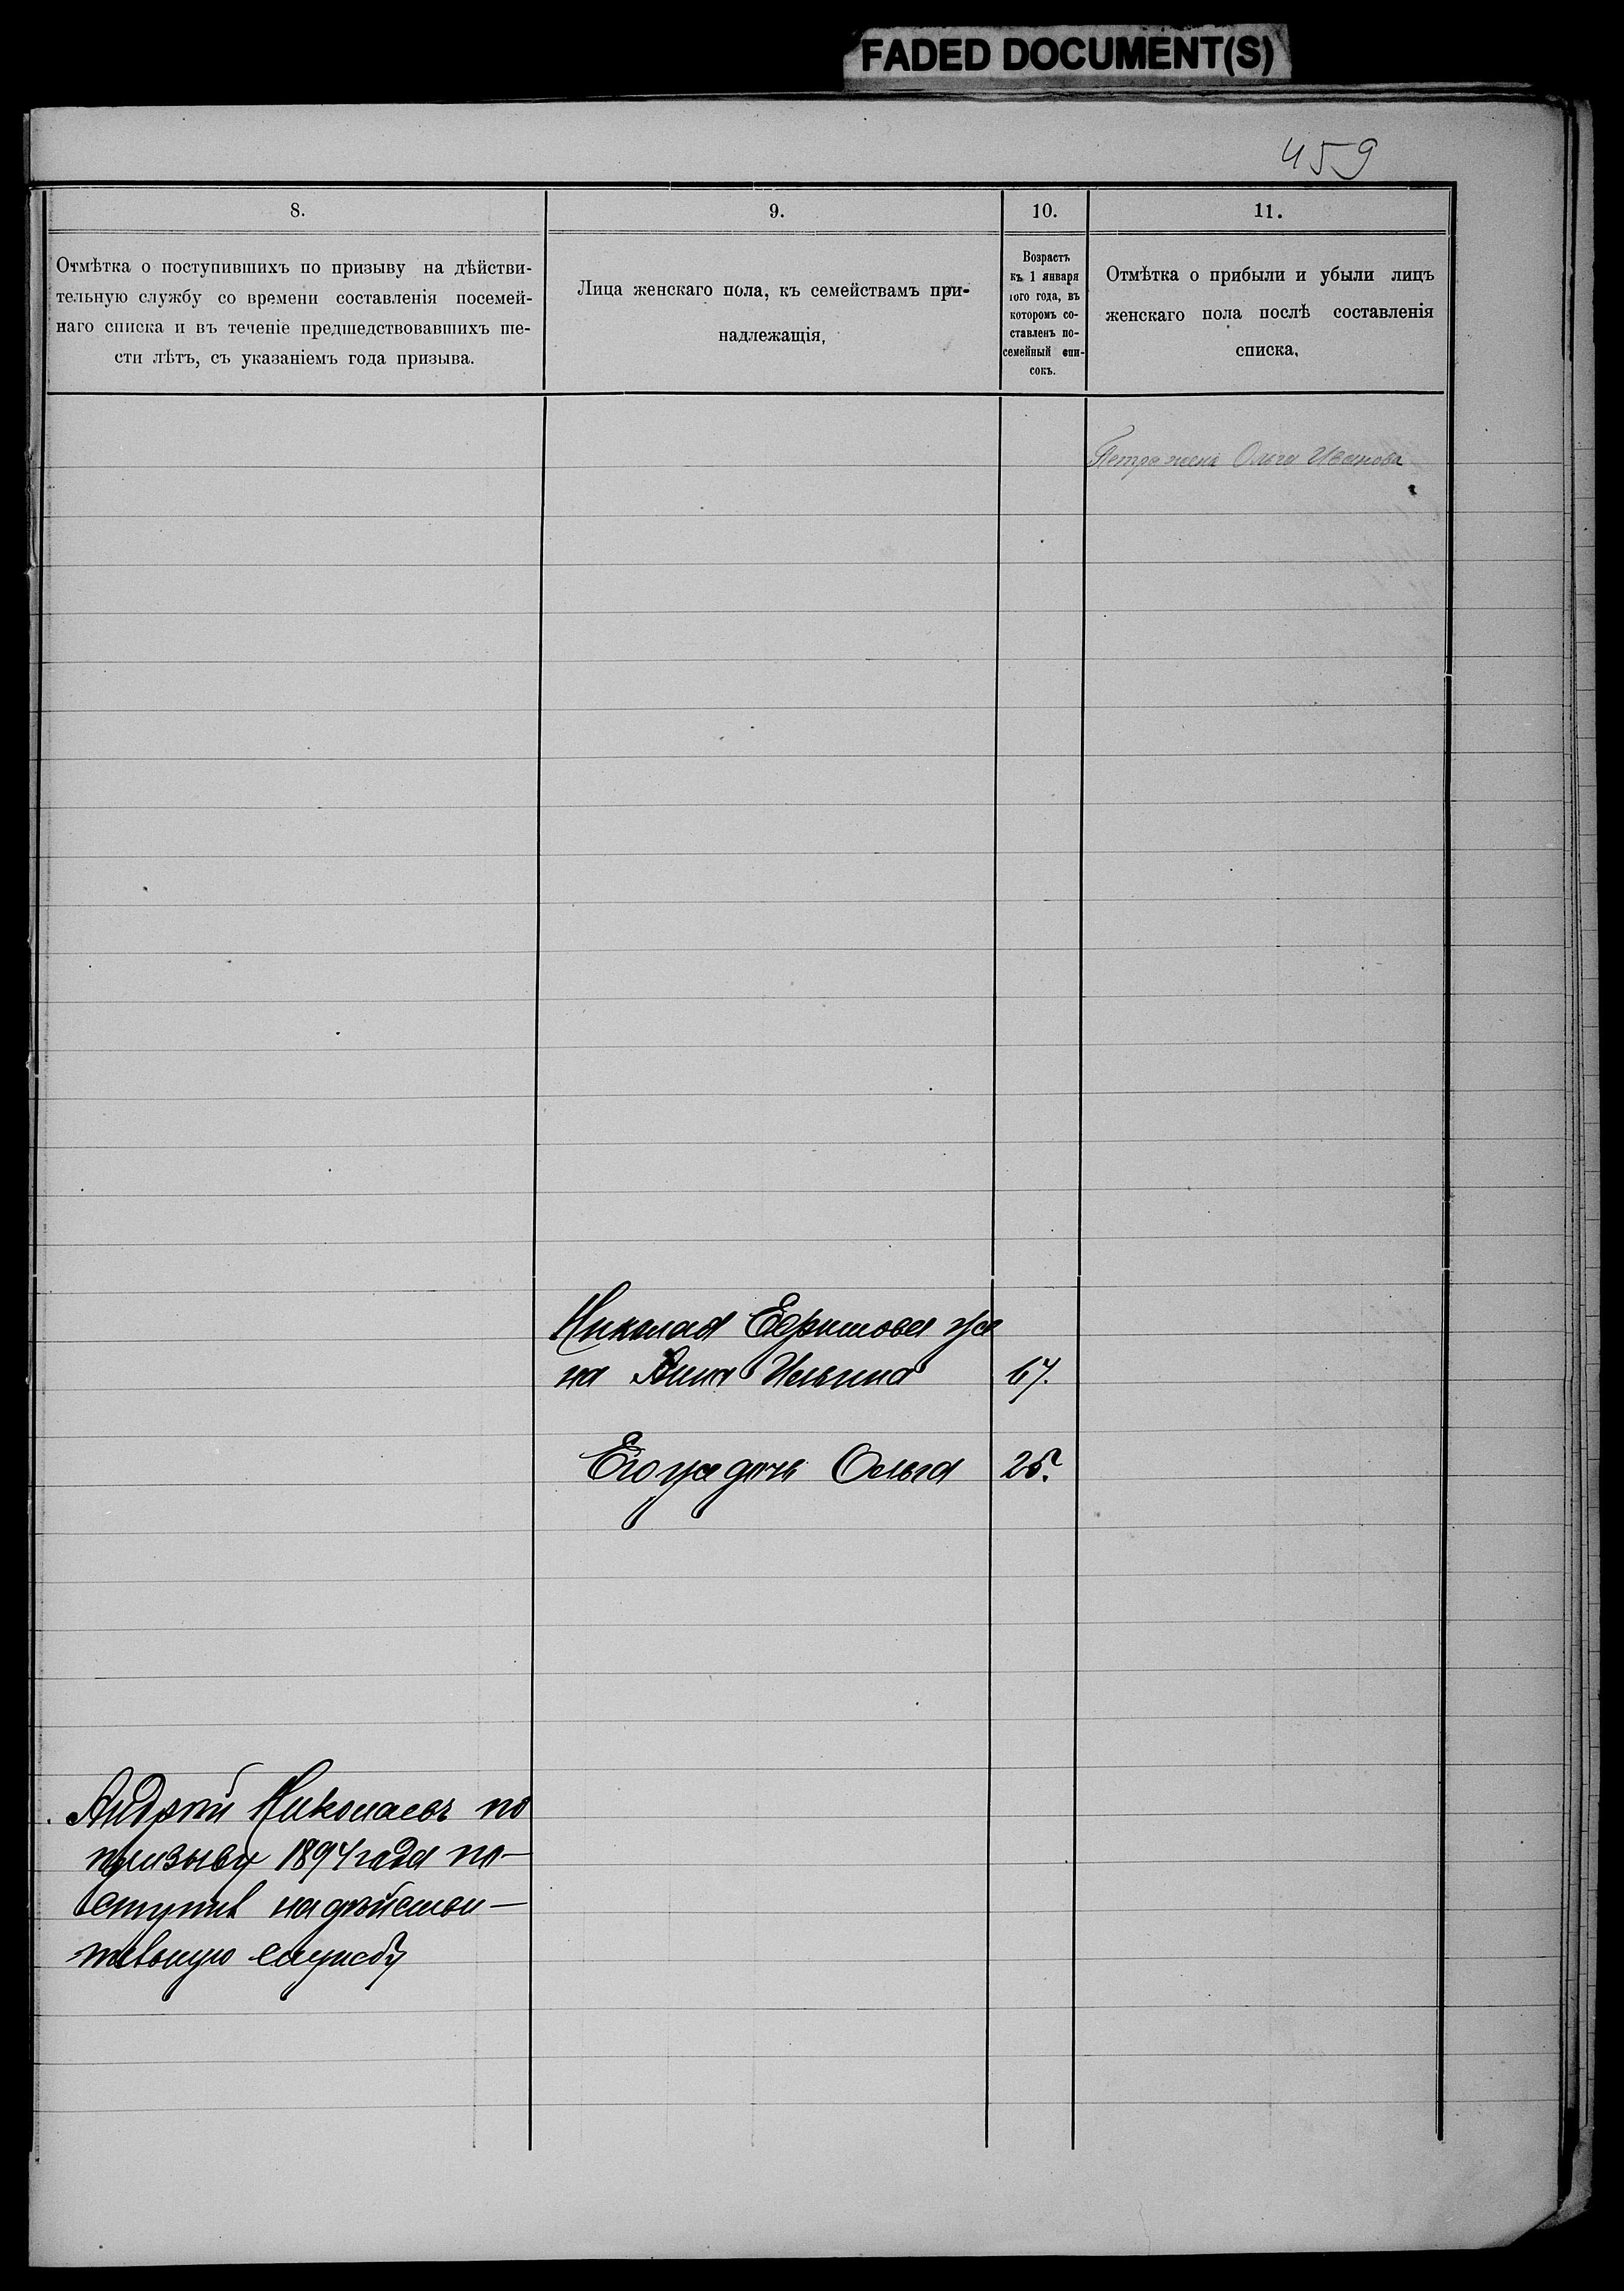 FADED DOCUMENT(S)
459
8.
Отмѣтка о поступившихъ по призыву на дѣйстви-
тельную службу со времени составленія посемей-
наго списка и въ теченіе предшедствовавшихъ ше-
сти лѣтъ, съ указаніемъ года призыва.
9.
Лица женскаго пола, къ семействамъ при-
надлежащія,
10.
Возрастъ
къ 1 января
1ого года, въ
которомъ со-
ставленъ по-
семейный спи-
сокъ.
11.
Отмѣтка о прибыли и убыли лицъ
женскаго пола послѣ составленія
списка.
Петра жена Ольга Иванова
Николая Ефимова же
на Анна Ильина
67.
Его же дочь Ольга
25.
Андрей Николаевъ по
призыву 1894 года по-
ступив на дѣйстви-
тельную службу